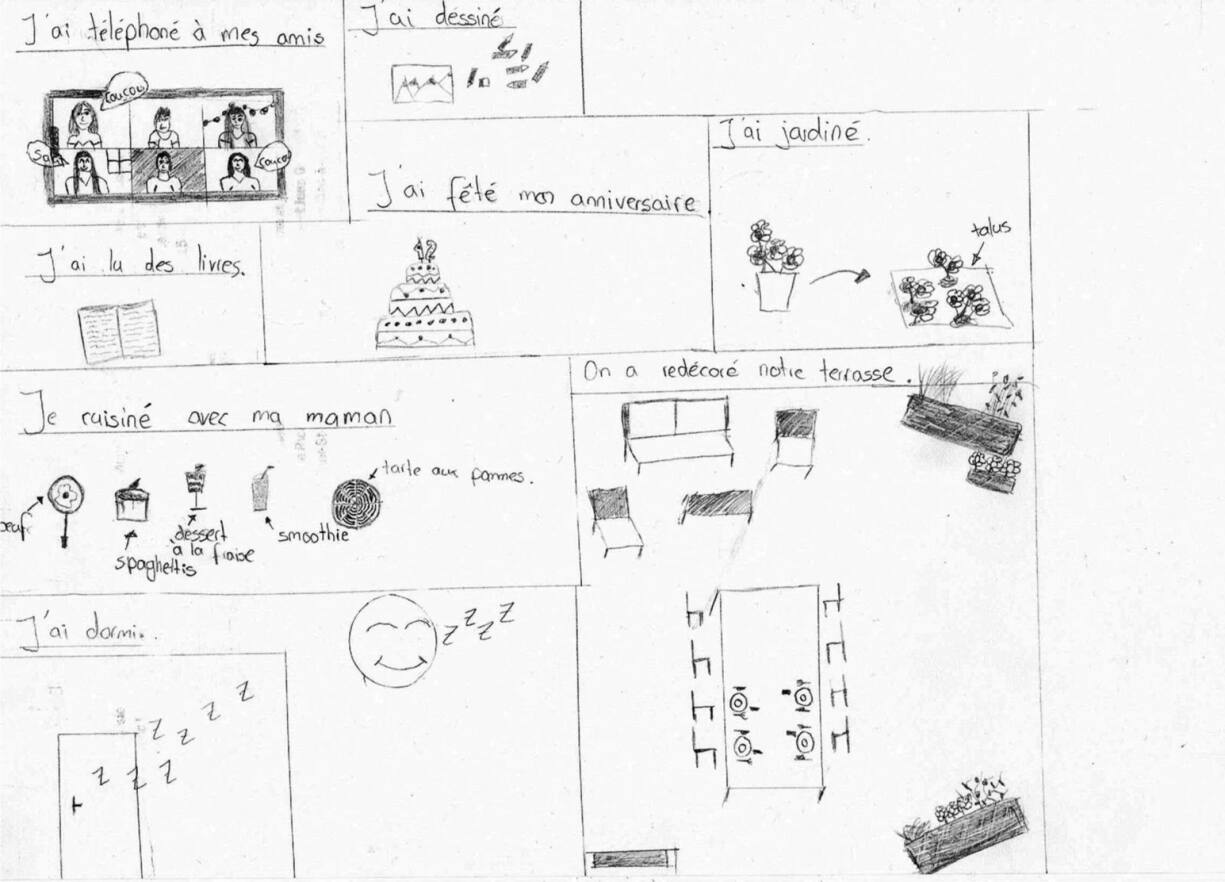 J'ai téléphoné à mes amis
coucou
coucou
J'ai déssiné
J'ai jardiné.
talus
J'ai fêté mon anniversaire
12
J'ai lu des livres.
On a redécoré notre terrasse.
Je cuisiné avec ma maman
tarte aux pommes.
smoothie
dessert
à la fraise
spaghettis
J'ai dormi.
z z z z
z
z
z z
z z z